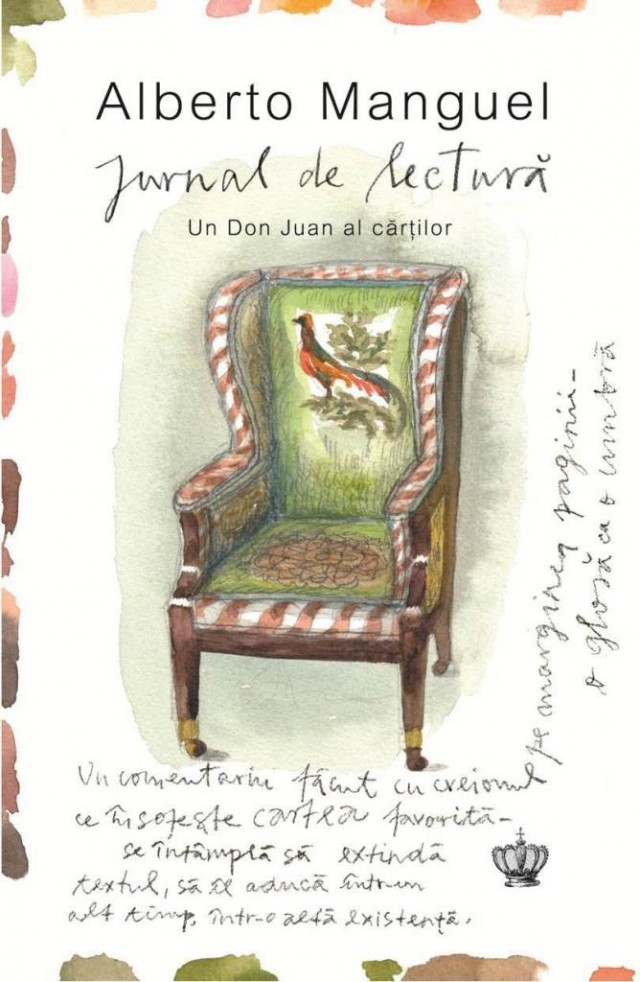 Alberto Manguel
Jurnal de lectură
Un Don Juan al cărților
Un comentariu făcut cu creionul
pe marginea paginii –
o glosă ca o umbră
ce însoțește cartea favorită –
se întâmplă să extindă
textul, să îl aducă într-un
alt timp, într-o altă existență.